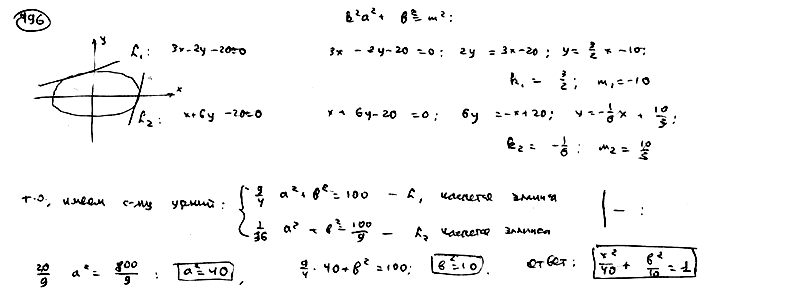 496
k²a² + b² = m²:
y
L₁: 3x-2y-20=0 3x - 2y-20 = 0; 2y = 3x-20; y = 3/2 x - 10;
k₁ = 3/2; m₁ = -10
x
L₂: x+6y-20=0 x + 6y-20 = 0; 6y = -x+20; y = -1/6 x + 10/3;
k₂ = -1/6; m₂ = 10/3
т.о, имеем с-му ур-ний: { 9/4 a² + b² = 100 - L₁ касается эллипса | - :
1/36 a² + b² = 100/9 - L₂ касается эллипса
20/9 a² = 800/9; a² = 40, 9/4 · 40 + b² = 100; b² = 10. Ответ: x²/40 + b²/10 = 1